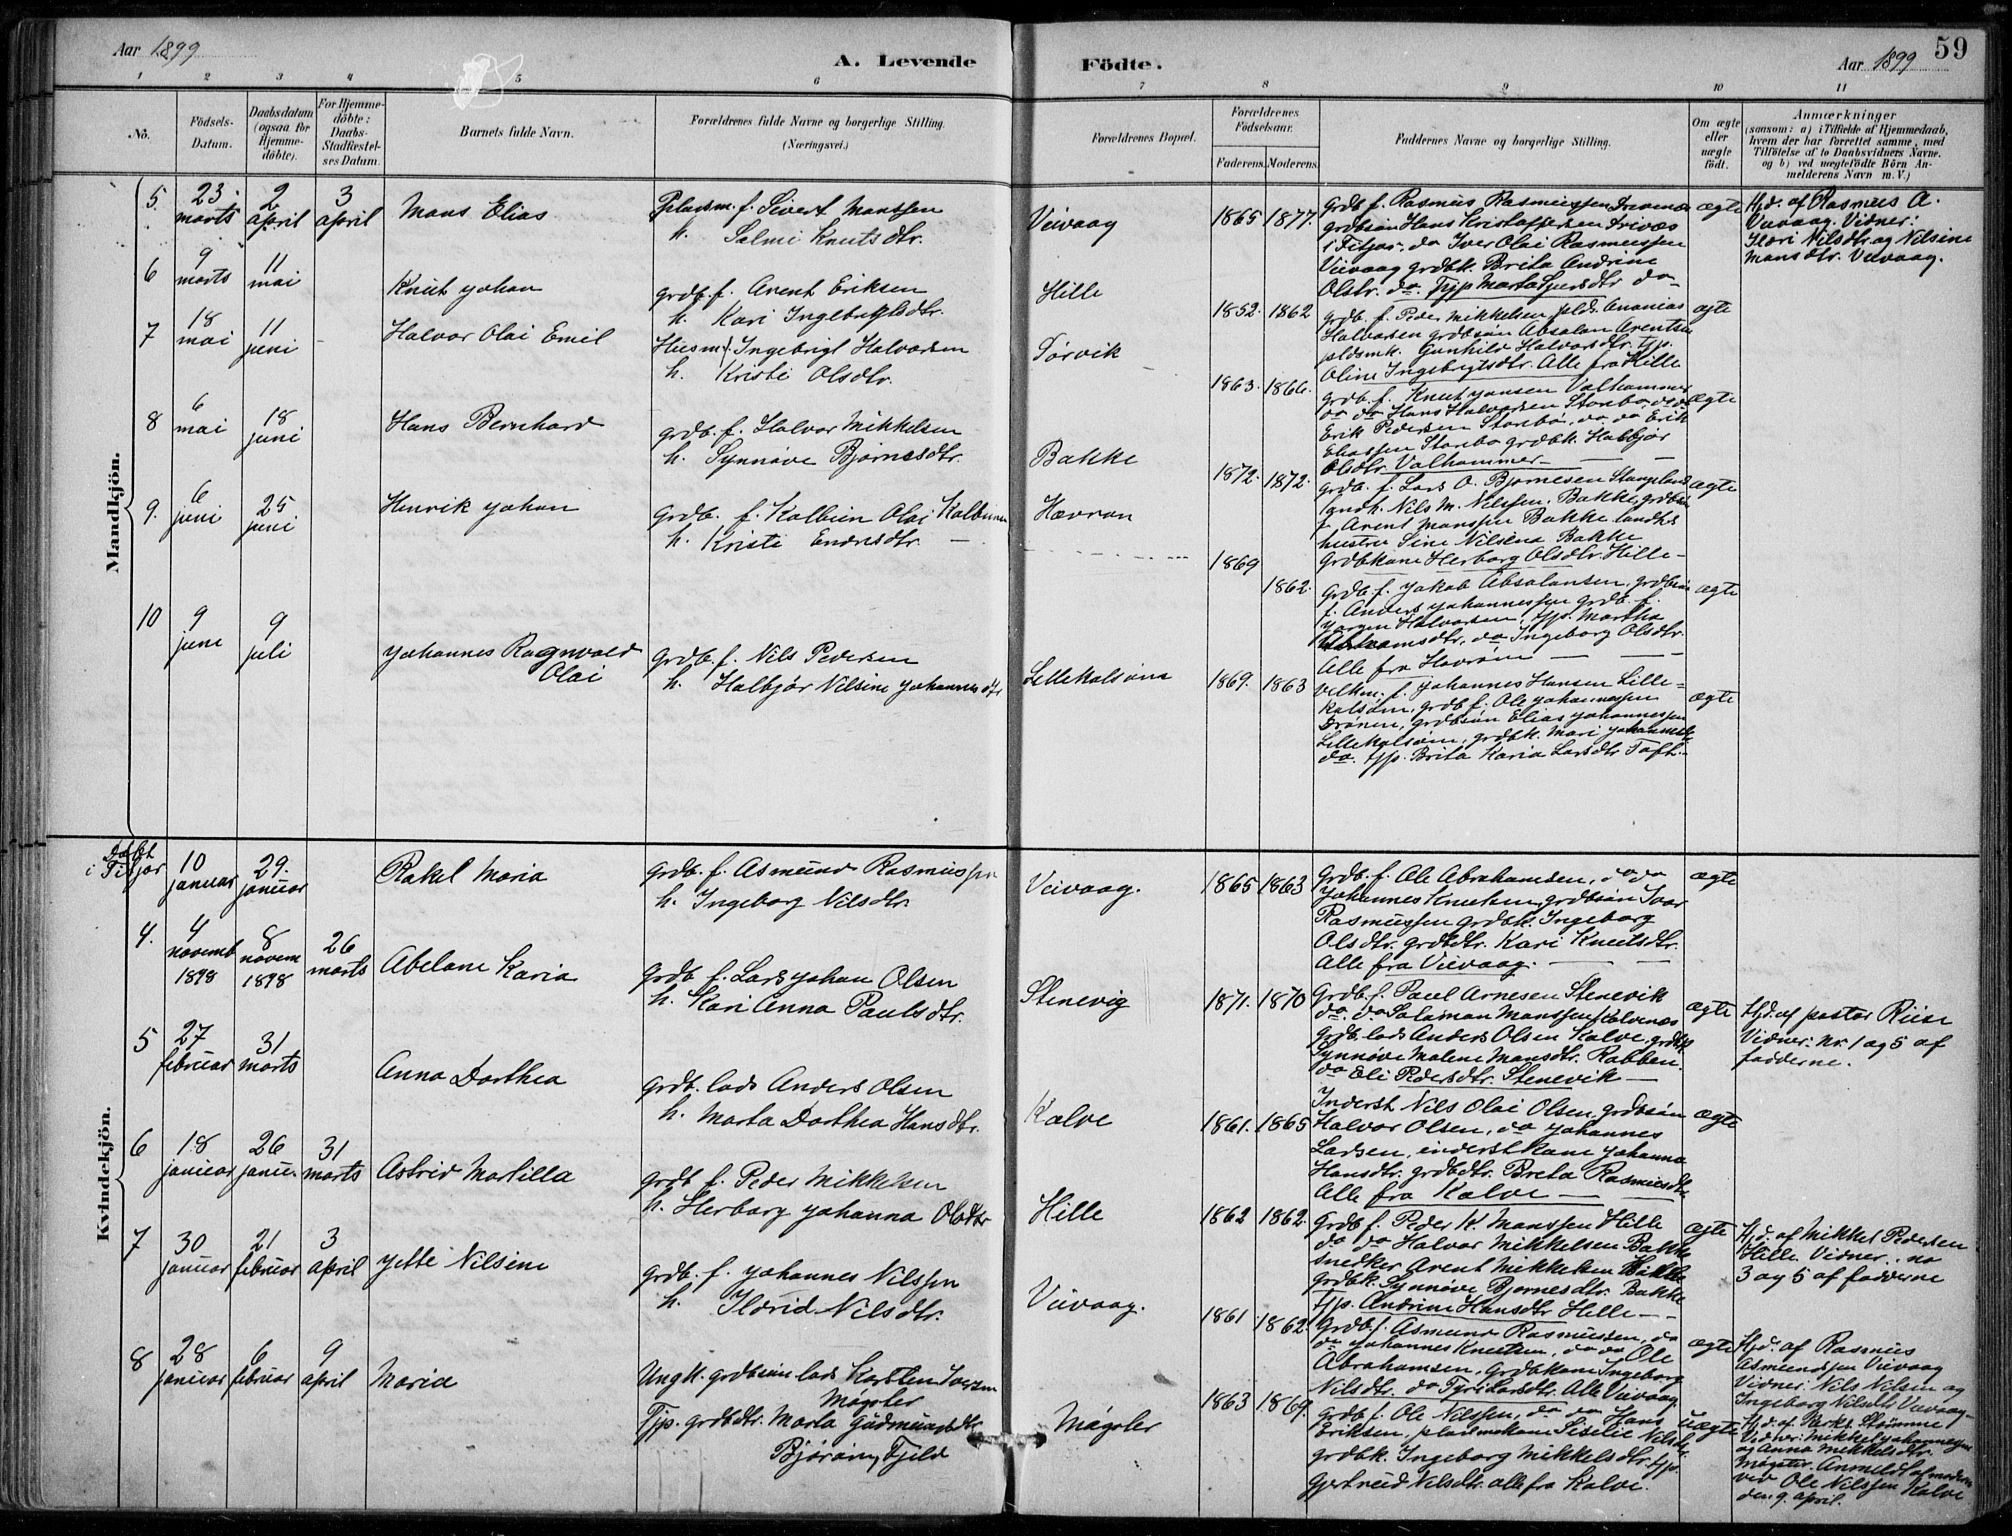 Aar 1899
A. Levende
Födte.
Aar 1899
59
1 2 3 4 5 6 7 8 9 10 11
No.
Födsels-
Datum.
Daabsdatum
(ogsaa for
Hjemme-
döbte).
For Hjemme-
döbte:
Daabs-
Stadfæstel-
ses Datum.
Barnets fulde Navn.
Forældrenes fulde Navne og borgerlige Stilling.
(Næringsvei.)
Forældrenes Bopæl.
Forældrenes
Födselsaar.
Faderens. Moderens.
Faddernes Navne og borgerlige Stilling.
Om ægte
eller
uægte
födt.
Anmærkninger
(saasom: a) i Tilfælde af Hjemmedaab,
hvem der har forrettet samme, med
Tilföielse af to Daabsvidners Navne.
og b) ved uægtefödte Börn An-
melderens Navn m. V.)
Mandkjön.
5. 23 marts 2 april 3 april
Mons Elias
Pladsm. f. Sivert Monssen
h. Salmi Knutsdtr.
Veivaag
1865 1877.
grdb f. Rasmus Rasmussen
grdbsön Hans Kristoffersen
i Fitjar. do Iver Olai Rasmussen
Veivaag grdbk. Brita Andrine
Olsdtr. do.
ægte
Hjd. af Rasmus A.
Veivaag. Vidner:
Nilsdtr og Nilsine
Monsdtr. Veivaag.
6 9 marts 11 mai
Knut Johan
grdb. f. Arent Eriksen
h. Kari Ingebrigtsdtr.
Hille
1852. 1862
grdb. f. Peder Mikkelsen plds. Ananias
Halvorsen grdbsön Absalon Arentsen
pldsmk. Gunhild Halvorsdtr. tjp.
Oline Ingebrigtsdtr. Alle fra Hille
ægte
7 18 mai 11 juni -
Halvor Olai Emil
Husm f. Ingebrigt Halvorsen
h. Kristi Olsdtr.
Torvik
1863. 1866.
grdb. f. Knut Jansen Valhammer
do do Hans Halvorsen Storebö, do do
Erik Pedersen Storebö, do do Erik
Eliassen Storebö grdbk. Halbjör
Olsdtr. Valhammer —
ægte
8 6 mai 18 juni
Hans Bernhard
grdb. f. Halvor Mikkelsen
h. Synnöve Bjornesdtr.
Bakke
1872. 1872.
grdb. f. Lars O. Bjornesen Stangeland
landh. Nils M. Nilssen. Bakke, grdbsön
f. Arent Monssen Bakke landhs
hustru Sine Nilsena Bakke
grdbkone Herborg Olsdtr. Hille -
ægte
9. 6 juni 25 juni
Henrik Johan
grdb. f. Kolbein Olai Kolbeinsen
h. Kristi Endresdtr. —
Hævron
1869 1862.
grdb. f. Jakob Absalonsen, grdbsön
f. Anders Johannessen grdb. f.
Jörgen Halvorsen, tjp. Martha
do Ingeborg Olsdtr.
Alle fra Havröen — —
ægte
10 9 juni 9 juli
Johannes Ragnvald
Olai
grdb. f. Nils Pedersen
h. Halbjör Nilsine Johannesdtr
Lillekalsöen
1869. 1863
f. Johannes Hansen Lille-
kalsöen, grdb f. Ole Johannessen
Drönen, grdbsön Elias Johannessen
Lillekalsöen, grdbk. Mari Johannesdtr
do. tjp. Brita Karia Larsdtr Toft. -
ægte
Kvindekjön.
döbt
i Fitjar 10 januar 29. januar
Rakel Maria
grdb. f. Asmund Rasmussen
h. Ingeborg Nilsdtr.
Veivaag.
1865 1863
grdb. f. Ole Abrahamsen, do do
Johannes Knutsen, grdbsön Ivar
Rasmussen grdbk. Ingeborg
Olsdtr. grdbdtr. Kari Knutsdtr.
Alle fra Veivaag. — —
ægte
4. 4 novemb 1898 8 novem 1898 26 marts
Abelone Karia
grdb. f. Lars Johan Olsen
h. Kari Anna Paulsdtr.
Stenevig
1871. 1870
Grdb. f. Paul Arnesen Stenevik
do. do Salamon Monssen Kalvenæs
grdb. lods Anders Olsen Kalve. grdbk
Synnöve Malene Monsdtr. Rabben.
do Eli Pedersdtr. Stenevik —
ægte
Hjd. af pastor Riise
Vidner: nr. 1 og 5 af
fadderne.
5 27 februar 31 marts
Anna Dorthea
grdb. lods Anders Olsen
h. Marta Dorthea Hansdtr.
Kalve
1861. 1865
Inderst Nils Olai Olsen, grdbsön
Halvor Olsen, do Johannes
Larsen, inderst kone Johanna
Hansdtr. grdbdtr. Brita Rasmusdtr
Alle fra Kalve — —
ægte
6 18 januar 26 janu. 31 marts
Astrid Martilla
grdb f. Peder Mikkelsen
h. Herborg Johanna Olsdtr
Hille
1862 1862.
Grdb f. Peder K. Monssen Hille
do do Halvor Mikkelsen Bakke
snedker Arent Mikkelsen Bakke
grdbk. Synnöve Bjornesdtr. Bakke
tjp. Andrine Hansdtr Hille —
ægte
Hjd. af Mikkel Pedersen
Hille Vidner: no
3 og 5 af fadderne
7 30 januar 21 februar 3 april
Jette Nilsine
grdb. f. Johannes Nilssen
h. Ildrid Nilsdtr.
Veivaag.
1861 1862.
Grdb. f. Asmund Rasmussen, do
do Johannes Knutsen, do do Ole
Abrahamsen, grdbkone Ingeborg
Nilsdtr. do Tyri Larsdtr. Alle Veivaag.
ægte
Hjd. af Rasmus
Asmundsen Veivaag
Vidner: Nils Nilsen og
Ingeborg Nilsdtr Veivaag -
8 28 januar 6 februar 9 april
Maria
Ungk. grdbsön lods Karsten Iversen
Mögster
Tjp. grdbdtr. Marta Gudmundsdtr
Björöen, Fjeld
Mögster
1863 1869.
Grdb. f. Ole Nilssen, do do Hans
Eriksen, pladsmkone Siselie Nilsdtr
grdbk. Ingeborg Mikkelsdtr. tjp.
Gjertrud Nilsdtr. alle fra Kalve.
uægte
Hjd. af Strömme
Vidner: Mikkel Johannessen
og Anna Mikkelsdtr.
Mögster. Anmeldt af moderen
ved Ole Nilssen Kalve
den 9. april.